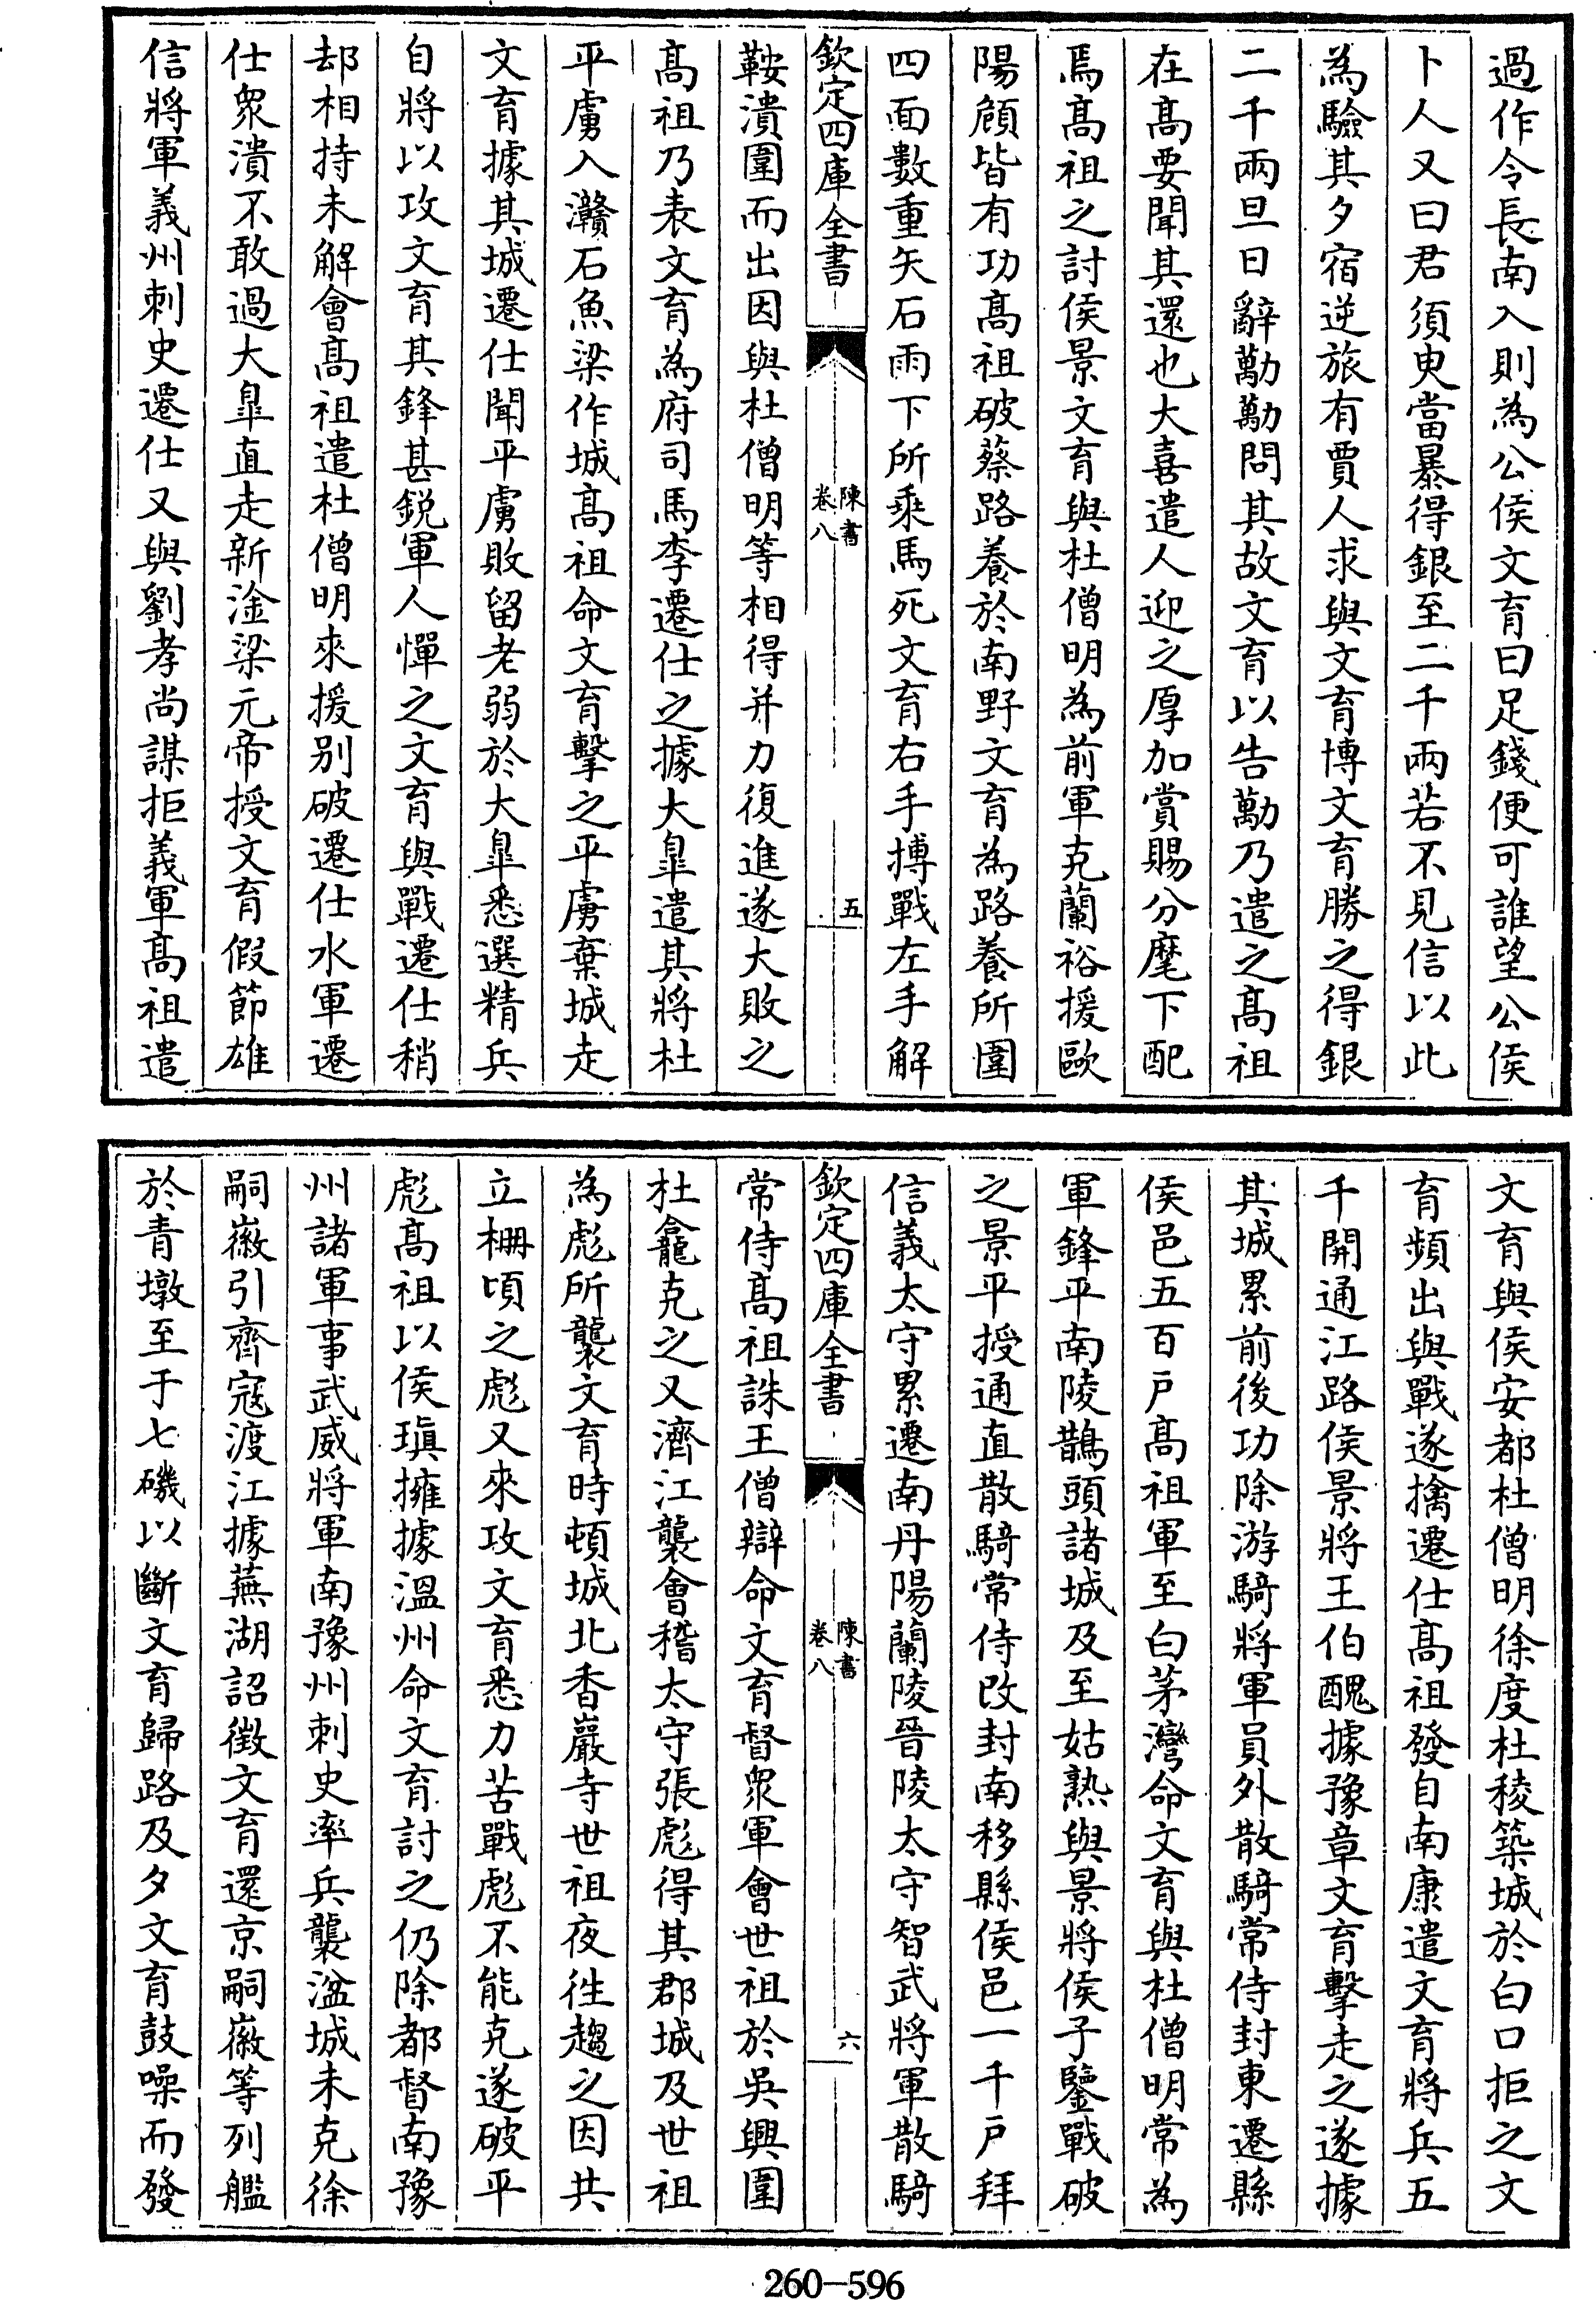 過作令長南入則為公侯文育曰足錢便可誰望公侯
卜人又曰君須臾當暴得銀至二千兩若不見信以此
為驗其夕宿逆旅有賈人求與文育博文育勝之得銀
二千兩旦日辭勱勱問其故文育以告勱乃遣之髙祖
在髙要聞其還也大喜遣人迎之厚加賞賜分麾下配
焉髙祖之討侯景文育與杜僧明為前軍克蘭裕援歐
陽頠皆有功髙祖破蔡路養於南野文育為路養所圍
四面數重矢石雨下所乗馬死文育右手搏戰左手解
欽定四庫全書
陳書
卷八
五
鞍潰圍而出因與杜僧明等相得并力復進遂大敗之
髙祖乃表文育為府司馬李遷仕之據大臯遣其將杜
平虜入灨石魚梁作城髙祖命文育擊之平虜棄城走
文育據其城遷仕聞平虜敗留老弱於大臯悉選精兵
自將以攻文育其鋒甚鋭軍人憚之文育與戰遷仕稍
却相持未解會髙祖遣杜僧明來援别破遷仕水軍遷
仕衆潰不敢過大臯直走新淦梁元帝授文育假節雄
信將軍義州刺史遷仕又與劉孝尚謀拒義軍髙祖遣
文育與侯安都杜僧明徐度杜稜築城於白口拒之文
育頻出與戰遂擒遷仕髙祖發自南康遣文育將兵五
千開通江路侯景將王伯醜據豫章文育擊走之遂據
其城累前後功除游騎將軍員外散騎常侍封東遷縣
侯邑五百戸髙祖軍至白茅灣命文育與杜僧明常為
軍鋒平南陵鵲頭諸城及至姑熟與景將侯子鑒戰破
之景平授通直散騎常侍改封南移縣侯邑一千戸拜
信義太守累遷南丹陽蘭陵晉陵太守智武將軍散騎
欽定四庫全書
陳書
卷八
六
常侍髙祖誅王僧辯命文育督衆軍會世祖於吳興圍
杜龕克之又濟江襲會稽太守張彪得其郡城及世祖
為彪所襲文育時頓城北香巖寺世祖夜往趨之因共
立柵頃之彪又來攻文育悉力苦戰彪不能克遂破平
彪髙祖以侯瑱擁據溫州命文育討之仍除都督南豫
州諸軍事武威將軍南豫州刺史率兵襲湓城未克徐
嗣徽引齊寇渡江據蕪湖詔徵文育還京嗣徽等列艦
於青墩至于七磯以斷文育歸路及夕文育鼓噪而發
260-596